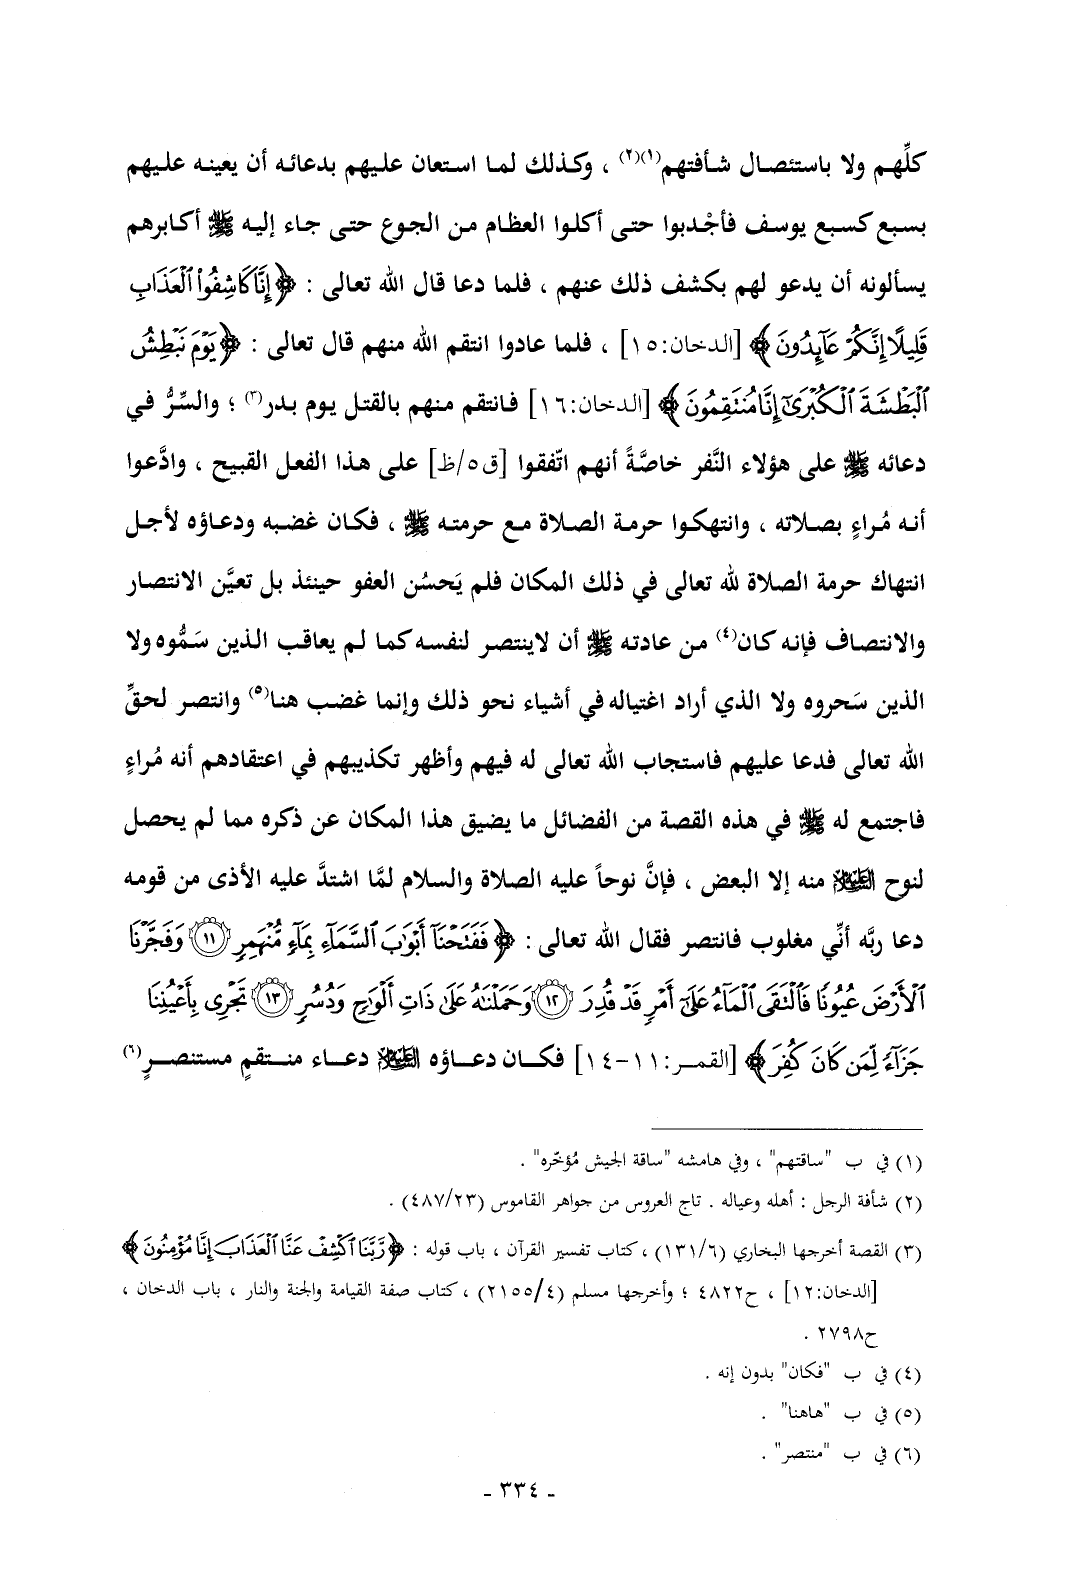 كلِّهم ولا باستئصال شأفتهم(١)(٢) ، وكذلك لما استعان عليهم بدعائه أن يعينه عليهم
بسبع كسبع يوسف فأجْدبوا حتى أكلوا العظام من الجوع حتى جاء إليه ﷺ أكابرهم
يسألونه أن يدعو لهم بكشف ذلك عنهم ، فلما دعا قال الله تعالى : ﴿ إِنَّا كَاشِفُوا۟ ٱلْعَذَابِ
قَلِيلًا إِنَّكُمْ عَآئِدُونَ ﴾ [الدخان:١٥] ، فلما عادوا انتقم الله منهم قال تعالى : ﴿ يَوْمَ نَبْطِشُ
ٱلْبَطْشَةَ ٱلْكُبْرَىٰٓ إِنَّا مُنتَقِمُونَ ﴾ [الدخان:١٦] فانتقم منهم بالقتل يوم بدر(٣) ؛ والسِّرُّ في
دعائه ﷺ على هؤلاء النَّفر خاصَّةً أنهم اتّفقوا [ق٥/ظ] على هذا الفعل القبيح ، وادَّعوا
أنه مُراءٍ بصلاته ، وانتهكوا حرمة الصلاة مع حرمته ﷺ ، فكان غضبه ودعاؤه لأجل
انتهاك حرمة الصلاة لله تعالى في ذلك المكان فلم يَحسُن العفو حينئذ بل تعيَّن الانتصار
والانتصاف فإنه كان(٤) من عادته ﷺ أن لاينتصر لنفسه كما لم يعاقب الذين سَمُّوه ولا
الذين سَحروه ولا الذي أراد اغتياله في أشياء نحو ذلك وإنما غضب هنا(٥) وانتصر لحقِّ
الله تعالى فدعا عليهم فاستجاب الله تعالى له فيهم وأظهر تكذيبهم في اعتقادهم أنه مُراءٍ
فاجتمع له ﷺ في هذه القصة من الفضائل ما يضيق هذا المكان عن ذكره مما لم يحصل
لنوح العَلَيْهِ السَّلَام منه إلا البعض ، فإنَّ نوحاً عليه الصلاة والسلام لمَّا اشتدَّ عليه الأذى من قومه
دعا ربَّه أنِّي مغلوب فانتصر فقال الله تعالى : ﴿ فَفَتَحْنَآ أَبْوَٰبَ ٱلسَّمَآءِ بِمَآءٍ مُّنْهَمِرٍ ١١ وَفَجَّرْنَا
ٱلْأَرْضَ عُيُونًا فَٱلْتَقَى ٱلْمَآءُ عَلَىٰٓ أَمْرٍ قَدْ قُدِرَ ١٢ وَحَمَلْنَٰهُ عَلَىٰ ذَاتِ أَلْوَٰحٍ وَدُسُرٍ ١٣ تَجْرِى بِأَعْيُنِنَا
جَزَآءً لِّمَن كَانَ كُفِرَ ﴾ [القمر:١١-١٤] فكان دعاؤه العَلَيْهِ السَّلَام دعاء منتقمٍ مستنصرٍ(٦)
(١) في ب "ساقتهم" ، وفي هامشه "ساقة الجيش مُؤخّره" .
(٢) شأفة الرجل : أهله وعياله . تاج العروس من جواهر القاموس (٤٨٧/٢٣) .
(٣) القصة أخرجها البخاري (١٣١/٦) ، كتاب تفسير القرآن ، باب قوله : ﴿ رَّبَّنَا ٱكْشِفْ عَنَّا ٱلْعَذَابَ إِنَّا مُؤْمِنُونَ ﴾
[الدخان:١٢] ، ح٤٨٢٢ ؛ وأخرجها مسلم (٢١٥٥/٤) ، كتاب صفة القيامة والجنة والنار ، باب الدخان ،
ح٢٧٩٨ .
(٤) في ب "فكان" بدون إنه .
(٥) في ب "هاهنا" .
(٦) في ب "منتصر" .
- ٣٣٤ -